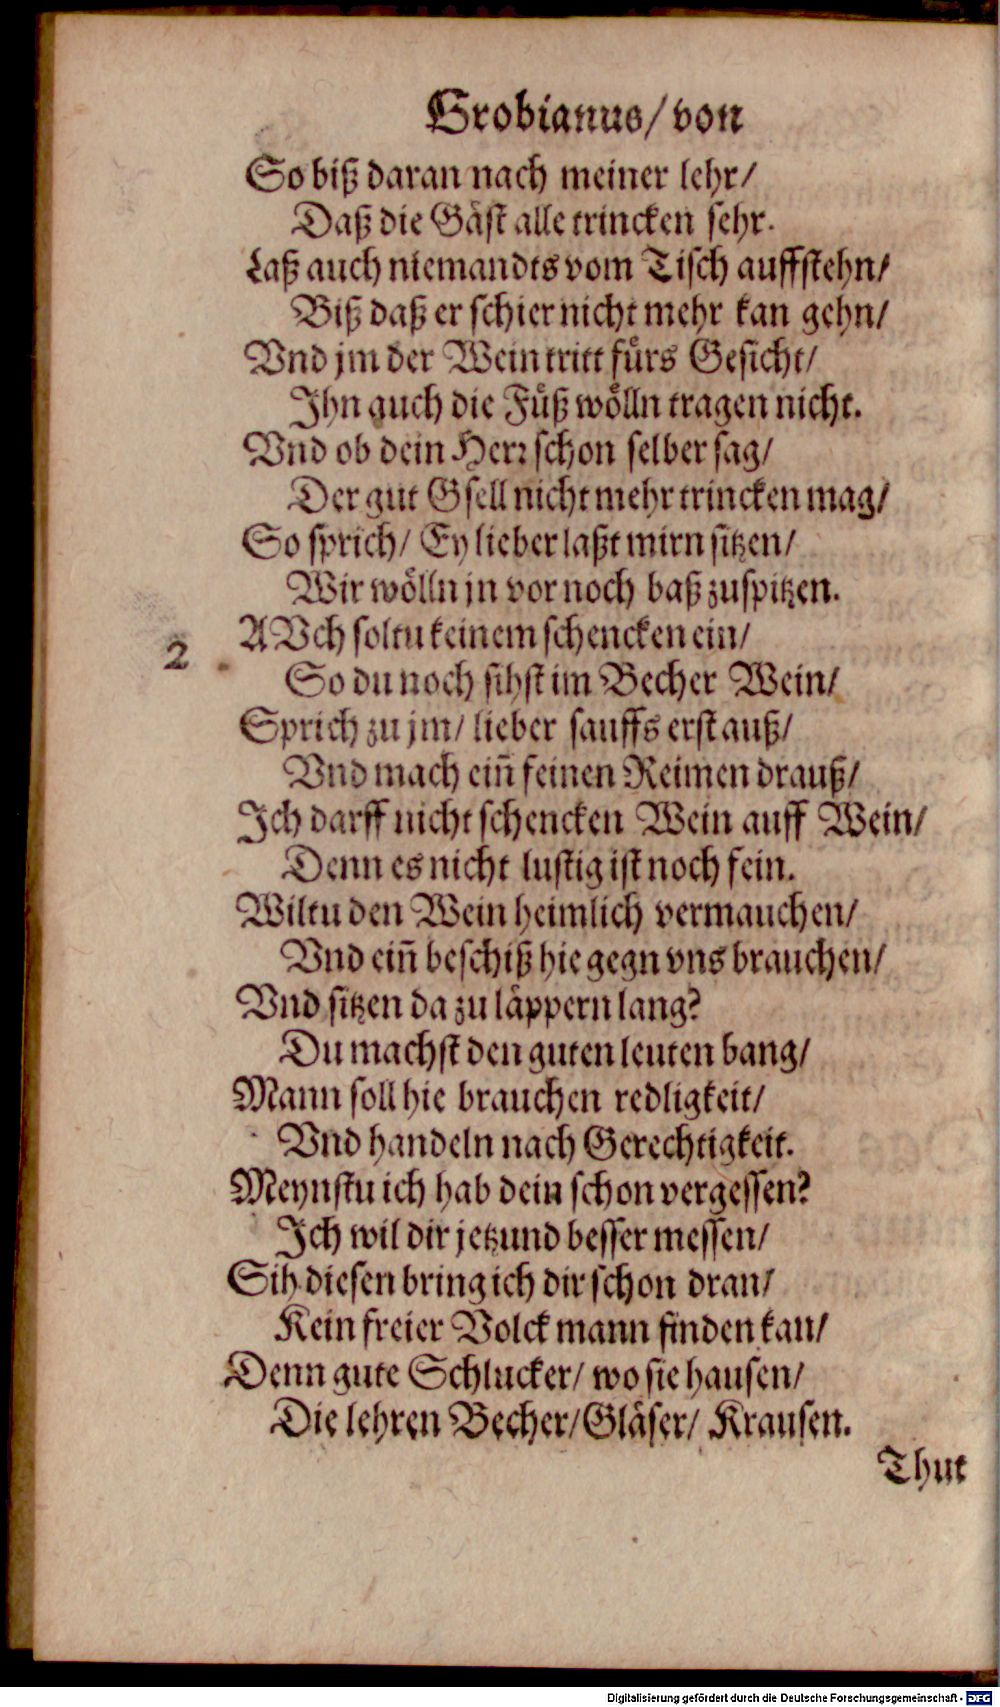 Grobianus/ von
So biß daran nach meiner lehr/
Daß die Gäst alle trincken sehr.
Laß auch niemandts vom Tisch auffstehn/
Biß daß er schier nicht mehr kan gehn/
Vnd jm der Wein tritt fürs Gesicht/
Ihn auch die Füß wölln tragen nicht.
Vnd ob dein Herr schon selber sag/
Der gut Gsell nicht mehr trincken mag/
So sprich/ Ey lieber laßt mirn sitzen/
Wir wölln jn vor noch baß zuspitzen.
2 AVch soltu keinem schencken ein/
So du noch sihst im Becher Wein/
Sprich zu jm/ lieber sauffs erst auß/
Vnd mach ein̄ feinen Reimen drauß/
Ich darff nicht schencken Wein auff Wein/
Denn es nicht lustig ist noch fein.
Wiltu den Wein heimlich vermauchen/
Vnd ein̄ beschiß hie gegn vns brauchen/
Vnd sitzen da zu läppern lang?
Du machst den guten leuten bang/
Mann soll hie brauchen redligkeit/
Vnd handeln nach Gerechtigkeit.
Meynstu ich hab dein schon vergessen?
Ich wil dir jetzund besser messen/
Sih diesen bring ich dir schon dran/
Kein freier Volck mann finden kan/
Denn gute Schlucker/ wo sie hausen/
Die lehren Becher/ Gläser/ Krausen.
Thut
Digitalisierung gefördert durch die Deutsche Forschungsgemeinschaft - DFG